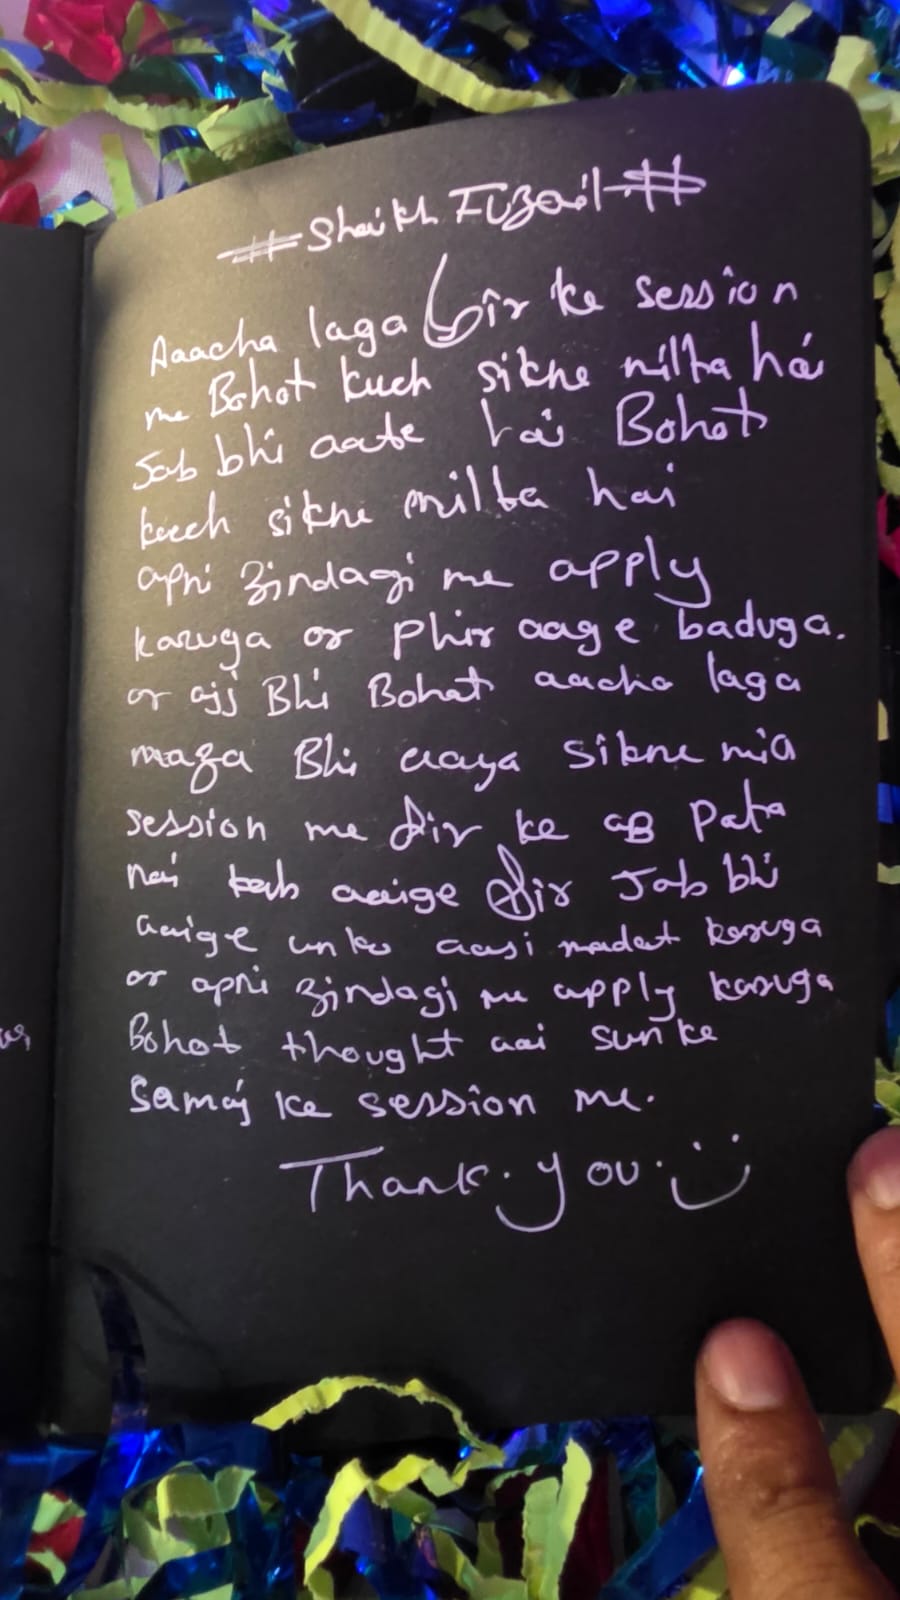 # Shaikh Fuzail #
Aaacha laga sir ke session
me Bohot kuch sikne milta hai
Jab bhi aate hai Bohot
kuch sikne milta hai
apni zindagi me apply
karuga or phir aage baduga.
or ajj Bhi Bohat aacha laga
maza Bhi aaya sikne mia
session me sir ke ab pata
nai kab aaige sir Jab bhi
aaige unko aasi madat karuga
or apni zindagi me apply karuga
Bohot thought aai sun ke
Samaj ke session me.
Thank. you. :)